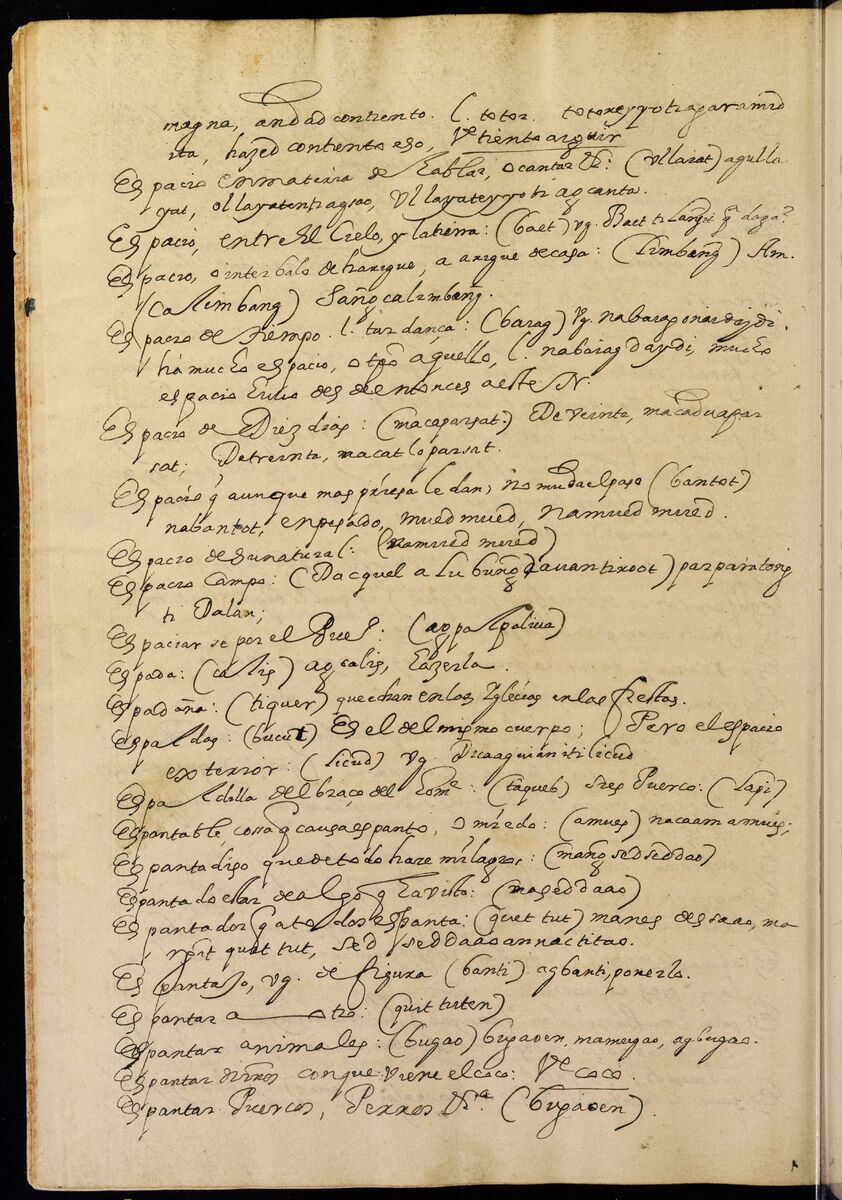 magna, andad contiento. l. totor. totoreyyo ti pagaramid
ita, hazed contiento eso, Vᵉ tiento a seguir
Espacio enmateria de hablar, o cantar &ª: (ullaiat) agulla
yat, ollayatentagsao, Ullayateyyo ti agcanta.
Espacio, entre El Cielo, y latierra: (baet) vg. Baet ti Langit q̃ daga?
Espacio, o interbalo de harigue, a arigue decasa: (Limbang̃) Am.
(calimbang) Sang̃ calimbang̃.
Espacio de tiempo. l. tardança: (barag) vg. nabarag onar dijdi.
há mucho espacio, o tpõ aquello, l. nabarag daydi, mucho
espacio hubo desde entonces aeste N.
Espacio de Diez dias: (macaparsat.) De veinte, macaduapar
sat; De treinta, macatloparsat.
Espacio q̃ aunque mas priesa le dan, no muda el paso (bantot)
nabantot, enpesado, muedmued, namuedmued.
Espacio de su natural: (namuedmued)
Espacio Campo: (Dacquel a lubung̃ à auantikoot) parparatong
ti Dalan;
Espaciarse por el Pueb.º: (agpaspaliua)
Espada: (calis) agcalis, hazerla.
Espadaña: (tiguer) que echan en las Yglecias en las fiestas.
Espaldas: (bucut) Es el del mismo cuerpo; Pero el espacio
exterior: (licud) vg. Pucaaquian iti licud
Espaldilla del braço del homᵉ: (taqueb) si es Puerco: (Lapi)
Espantable cossa q̃ causa espanto, o miedo: (amues) nacaam amues;
Espantadiso que de todo haze milagros: (mang̃sedseddao)
Espantado estar de algo q̃ ha visto: (maseddaao)
Espantador q̃ a todos espanta: (quettut) manes desaao, ma
ng̃it quettut, sed seddaao an nactitao.
Espantajo, vg. de figura (banti) agbanti, ponerlo.
Espantar a otro: (quittuten)
Espantar animales: (bugao) bugaoen, mamugao, agbugao.
Espantar niños con que viene el coco: Vᵉ coco.
Espantar Puercos, Perros &ª (bugaoen)